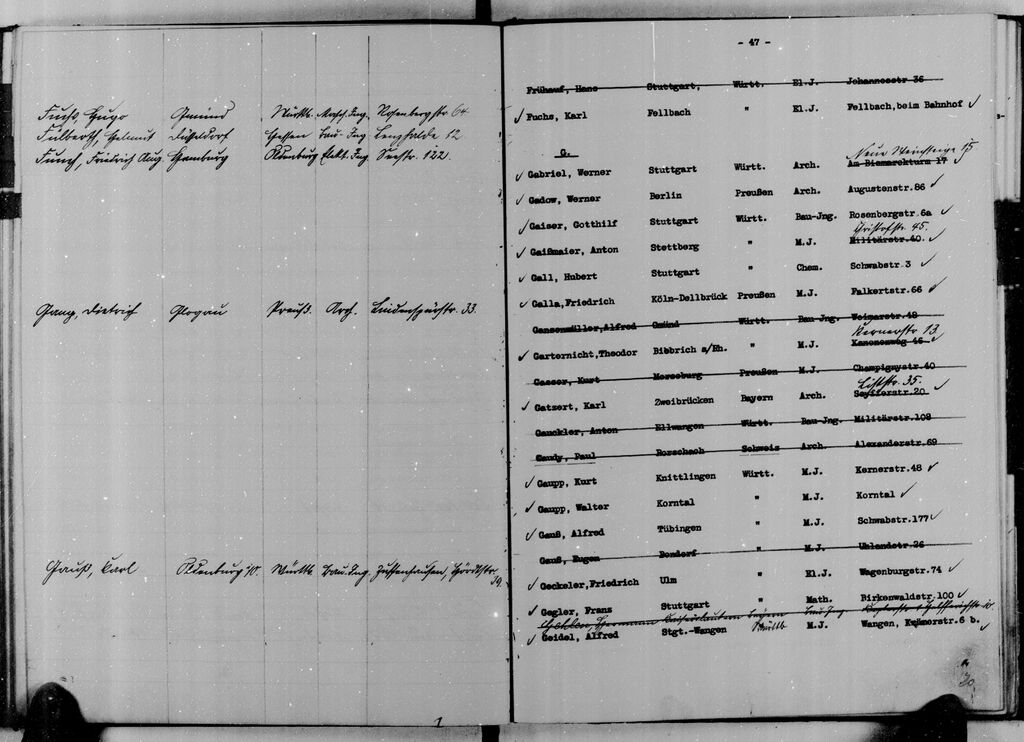 Fuchs, Hugo Gmünd Württb. Masch.Ing. Rosenbergstr. 64
Fülberth, Helmut Düsseldorf Hessen Bau-Ing Lenzhalde 12
Funch, Friedrich Aug. Hamburg Oldenburg Elekt.Ing Seestr. 122.
Gang, Dietrich Glogau Preuß. Arch. Lindenspürstr. 33.
Gauß, Karl Württb. Bau.Ing. Zuffenhausen,
- 47 -
Frühauf, Hans Stuttgart, Württ. El.J. Johannesstr 36
Fuchs, Karl Fellbach " El.J. Fellbach,beim Bahnhof
G.
Neue Weinsteige 15
Gabriel, Werner Stuttgart Württ. Arch. Am Bismarckturm 17
Gadow, Werner Berlin Preußen Arch. Augustenstr.86
Gaiser, Gotthilf Stuttgart Württ. Bau-Jng. Rosenbergstr.6a
Christofstr. 45.
Gaißmaier, Anton Stettberg " M.J. Militärstr.40.
Gall, Hubert Stuttgart " Chem. Schwabstr.3
Galla,Friedrich Köln-Dellbrück Preußen M.J. Falkertstr.66
Gansenmüller,Alfred Gmünd Württ. Bau-Jng. Weimarstr.48
Kernerstr 13.
Garternicht,Theodor Biebrich a/Rh. " M.J. Kanonenweg 46
Gaeser, Kurt Merseburg Preußen M.J. Champignystr.40
Liststr. 35.
Gatzert, Karl Zweibrücken Bayern Arch. Seyfferstr.20
Gauckler, Anton Ellwangen Württ. Bau-Jng. Militärstr.108
Gaudy, Paul Rorschach Schweiz Arch. Alexanderstr.69
Gaupp, Kurt Knittlingen Württ. M.J. Kernerstr.48
Gaupp, Walter Korntal " M.J. Korntal
Gauß, Alfred Tübingen " M.J. Schwabstr.177
Gauß, Eugen Bondorf " M.J. Uhlandstr.26
Geckeler,Friedrich Ulm " El.J. Wagenburgstr.74
Gegler, Franz Stuttgart " Math. Birkenwaldstr.100
Hermann Kaiserslautern Bayern Bau.Ing
Geidel, Alfred Stgt.-Wangen Württb M.J. Wangen, Krämerstr.6 b.